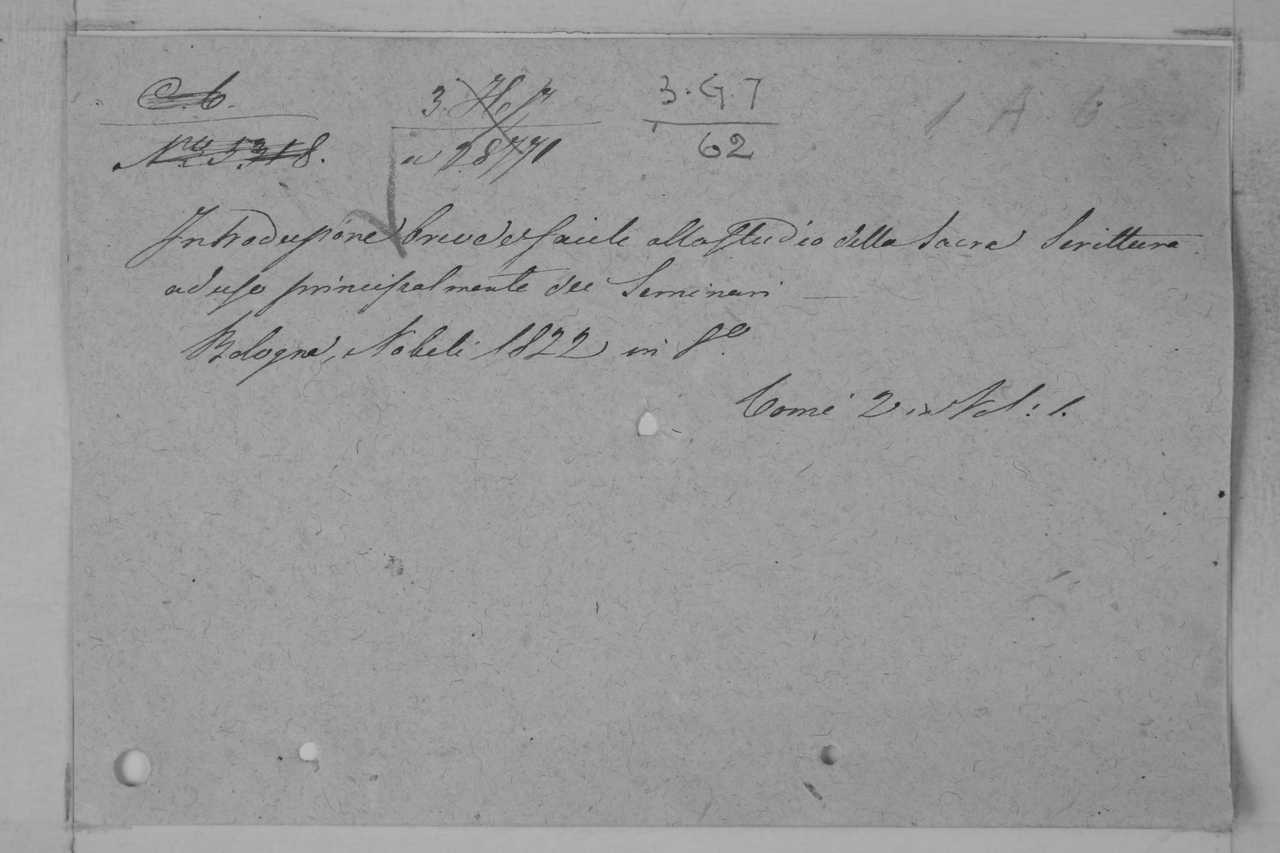 C. 6. 3. H. 7 3. G. 7 1 A 6
Nro 5318. 62
Introduzione breve e facile allo studio della Sacra Scrittura
ad uso principalmente dei Seminari —
Bologna, Nobili 1822 in 8º.
Tomi 2 in Vol: 1.